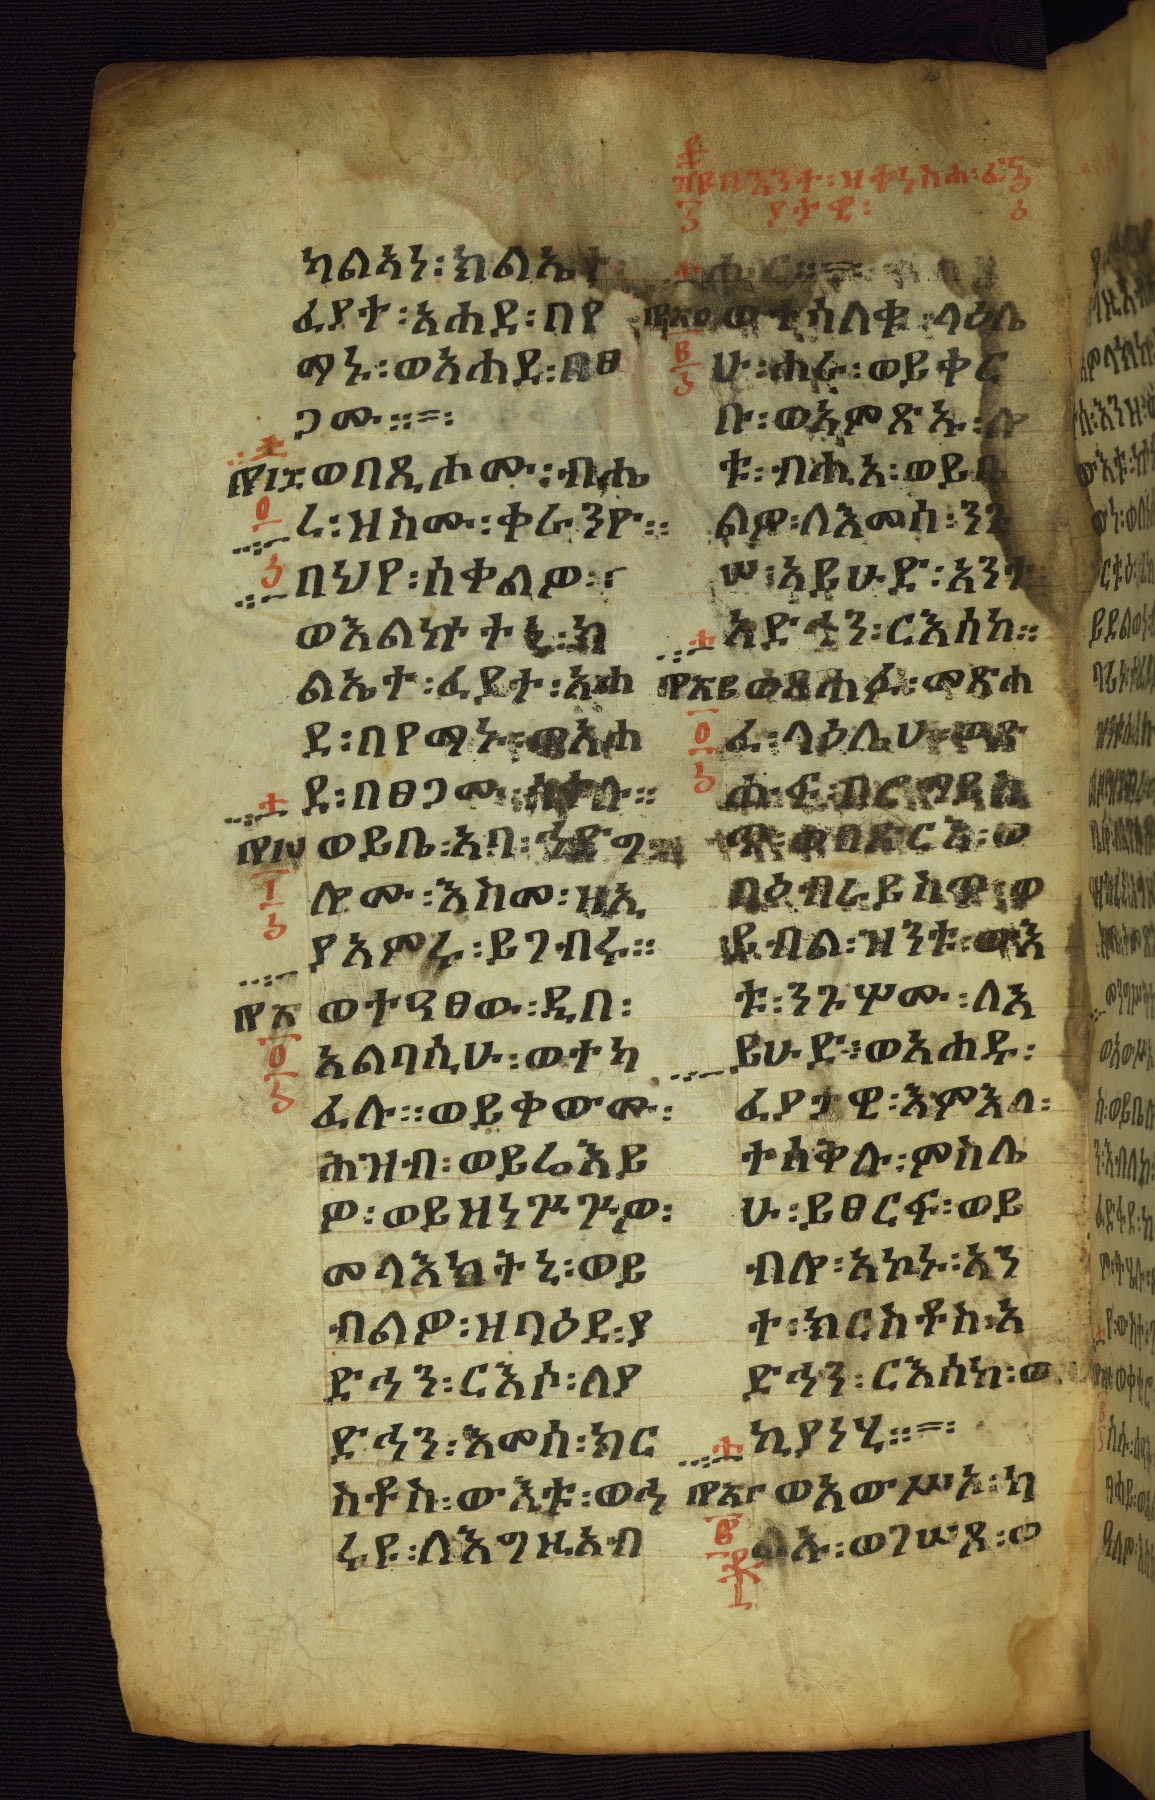 በእንተ፡ዘተነስሐ፡ፈ
ያታዊ፡
ካልኣነ፡ክልኤተ፡
ፈያተ፡አሐደ፡በየ
ማኑ፡ወአሐደ፡በፀ
ጋሙ።=፡
ወበጺሖሙ፡ብሔ
ረ፡ዝስሙ፡ቀራንዮ።
በህየ፡ሰቀልዎ፡
ወእልክተኒ፡ክ
ልኤተ፡ፈያተ፡አሐ
ደ፡በየማኑ፡ወአሐ
ደ፡በፀጋሙ፡ሰቀሉ።
ወይቤ፡አባ፡ኅድግ
ሎሙ፡እስመ፡ዘኢ
ያአምሩ፡ይገብሩ።
ወተዓፀው፡ዲበ፡
አልባሲሁ፡ወተካ
ፈሉ።ወይቀውሙ፡
ሕዝብ፡ወይሬእይ
ዎ፡ወይዘነጕጕዎ፡
መላእክትኒ፡ወይ
ብልዎ፡ዘባዕደ፡ያ
ድኅን፡ርእሶ፡ለያ
ድኅን፡እመሰ፡ክር
ስቶስ፡ውእቱ፡ወኅ
ሩዩ፡ለእግዚአብ
ሔር።=፡
ወተሳለቁ፡ላዕሌ
ሁ፡ሐራ፡ወይቀር
ቡ፡ወአምጽኡ፡ሎ
ቱ፡ብሒአ፡ወይቤ
ልዎ፡ለእመሰ፡ንጉ
ሠ፡አይሁድ፡አንተ
አድኅን፡ርእሰከ።
ወጸሐፉ፡መጽሐ
ፈ፡ላዕሌሁ፡ወጽ
ሐፉ፡በሮማይስ
ጥ፡ወበጽርእ፡ወ
በዕብራይስጥ፡ወ
ይብል፡ዝንቱ፡ውእ
ቱ፡ንጉሦሙ፡ለአ
ይሁድ፡ወአሐዱ፡
ፈያታዊ፡እምእለ፡
ተሰቅሉ፡ምስሌ
ሁ፡ይፀርፍ፡ወይ
ብሎ፡አኮኑ፡አን
ተ፡ክርስቶስ፡አ
ድኅን፡ርእሰከ፡ወ
ኪያነሂ።=፡
ወአውሥአ፡ካ
ልኡ፡ወገሠጾ፡ወ